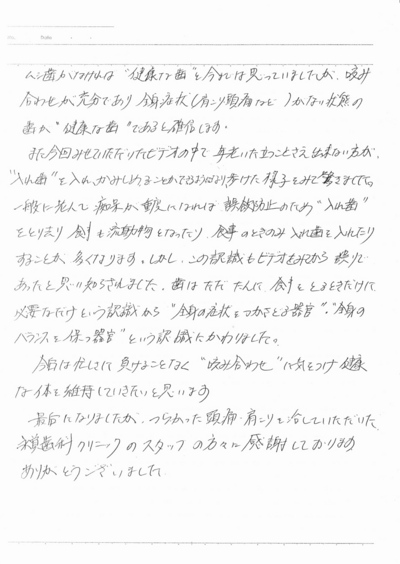 ムシ歯がなければ"健康な歯"と今までは思っていましたが、咬み
合わせが充分であり 全身症状(肩こり頭痛など)がない状態の
歯が"健康な歯"であると確信します。
また今回みせていただいたビデオの中で 年老いた立つことさえ出来ない方が、
"入れ歯"を入れ、かみしめることができるようになり歩けた様子をみて驚きました。
一般に老人で 痴呆が重度になれば 誤飲防止のため"入れ歯"
をとり去り 食事も流動物をとなったり、食事のときのみ入れ歯を入れたり
することが多くなります。しかし、この認識もビデオをみてから 誤りで
あったと思い知らされました。歯は ただ たんに 食事をとるときだけに
必要なだけという認識から "全身の症状をつかさどる器官"・"全身の
バランスを保つ器官"という認識にかわりました。
今後は忙しさに負けることなく "咬み合わせ"に気をつけ健康
な体を維持していきたいと思います
最后になりましたが、つらかった頭痛・肩こりを治していただいた
歯科クリニックのスタッフの方々に感謝しております
ありがとうございました